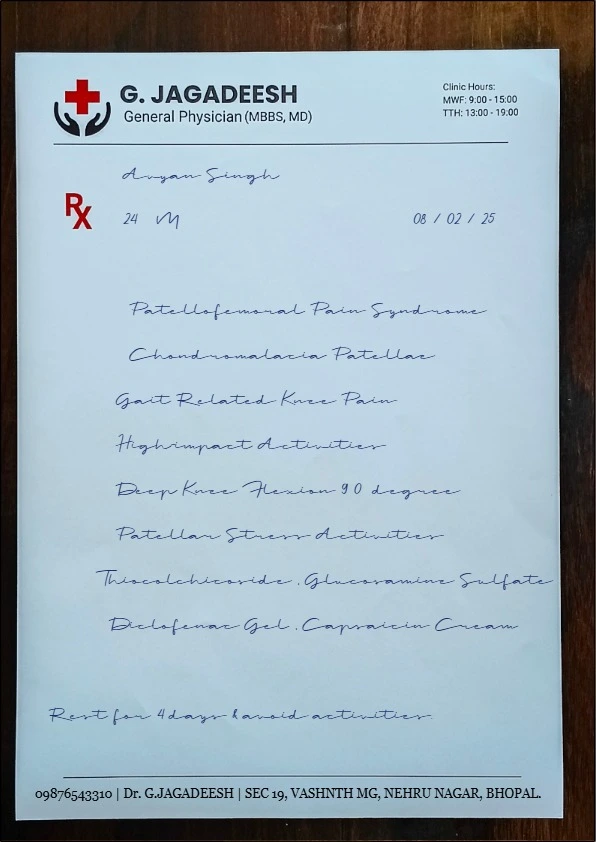 G. JAGADEESH
General Physician (MBBS, MD)
Clinic Hours:
MWF: 9:00 - 15:00
TTH: 13:00 - 19:00
Avyan Singh
Rx
24 M
08 / 02 / 25
Patellofemoral Pain Syndrome
Chondromalacia Patellae
Gait Related Knee Pain
High impact Activities
Deep Knee Flexion 90 degree
Patellar Stress Activities
Thiocolchicoside . Glucosamine Sulfate
Diclofenac Gel . Capsaicin Cream
Rest for 4 days & avoid activities.
09876543310 | Dr. G.JAGADEESH | SEC 19, VASHNTH MG, NEHRU NAGAR, BHOPAL.